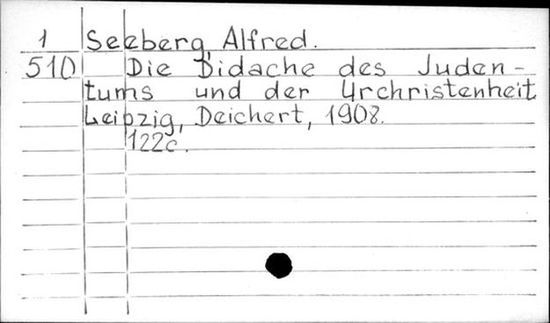 1 Seeberg, Alfred.
510 Die Didache des Juden-
tums und der Urchristenheit
Leipzig, Deichert, 1908.
122c.